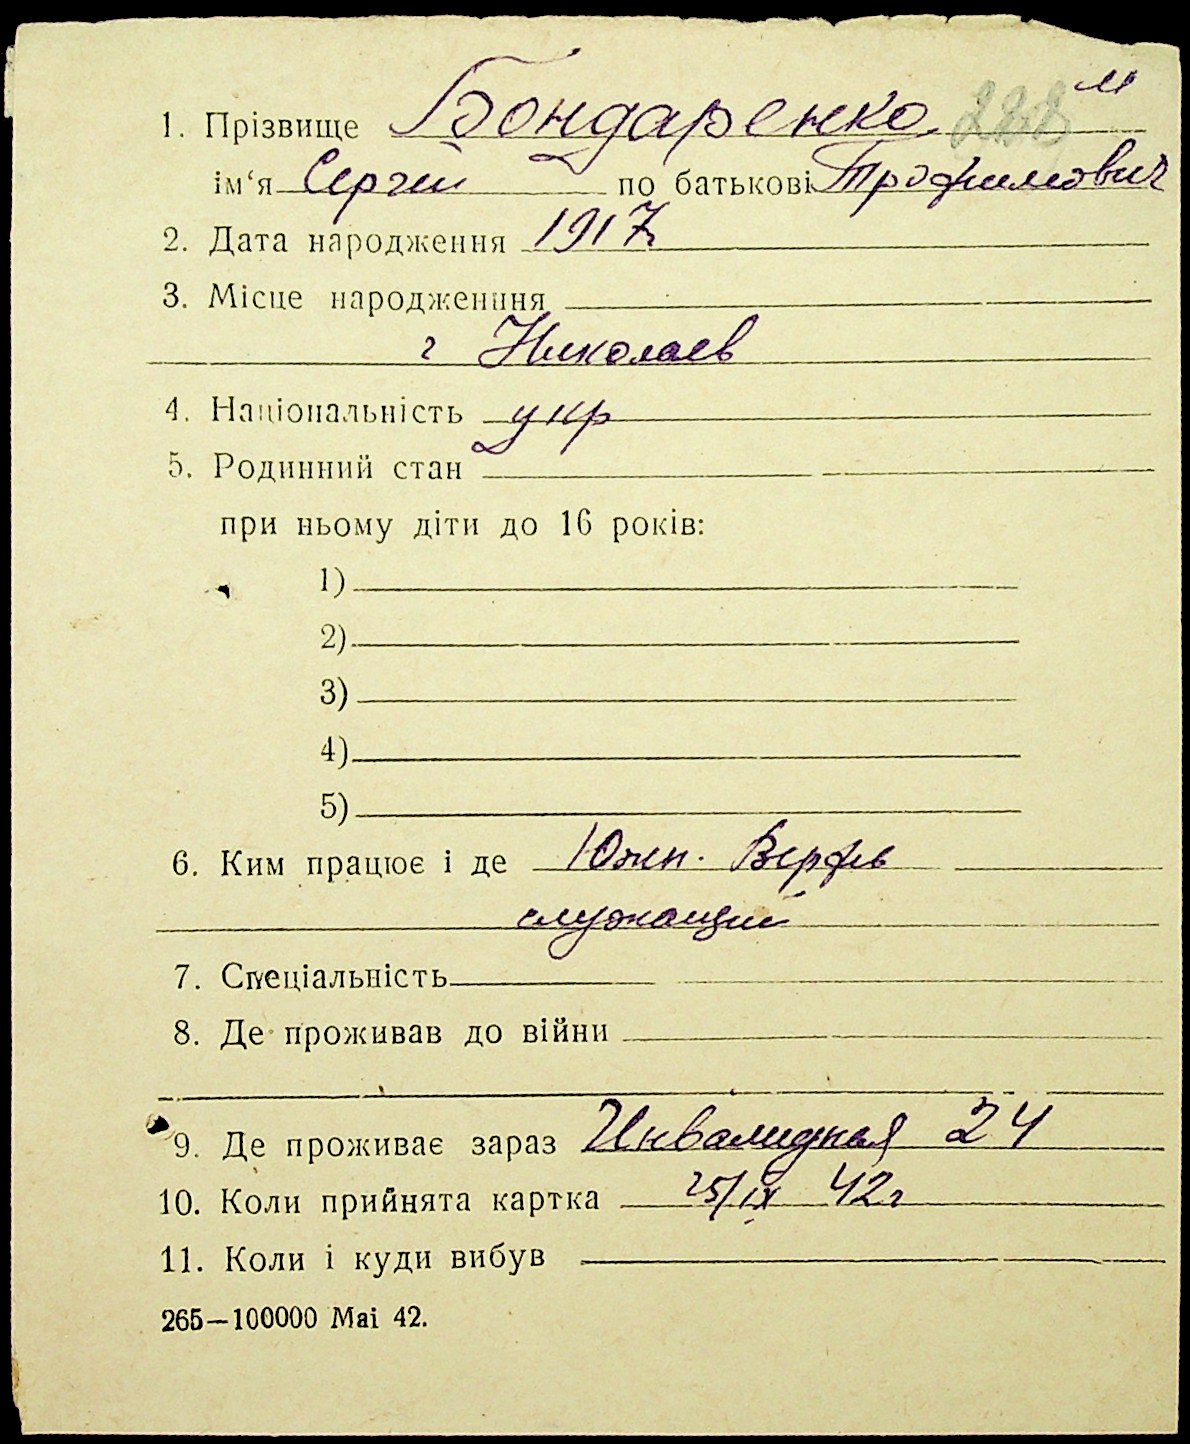 м
1. Прізвище Бондаренко
ім‘я Сергей по батькові Трофимович
2. Дата народження 1917
3. Місце народженння
г Николаев
4. Національність укр
5. Родинний стан
при ньому діти до 16 років:
1)
2)
3)
4)
5)
6. Ким працює і де Южн. Верфь
служащий
7. Спеціальність
8. Де проживав до війни
9. Де проживає зараз Инвалидная 24
10. Коли прийнята картка 25/IX 42г
11. Коли і куди вибув
265—100000 Mai 42.